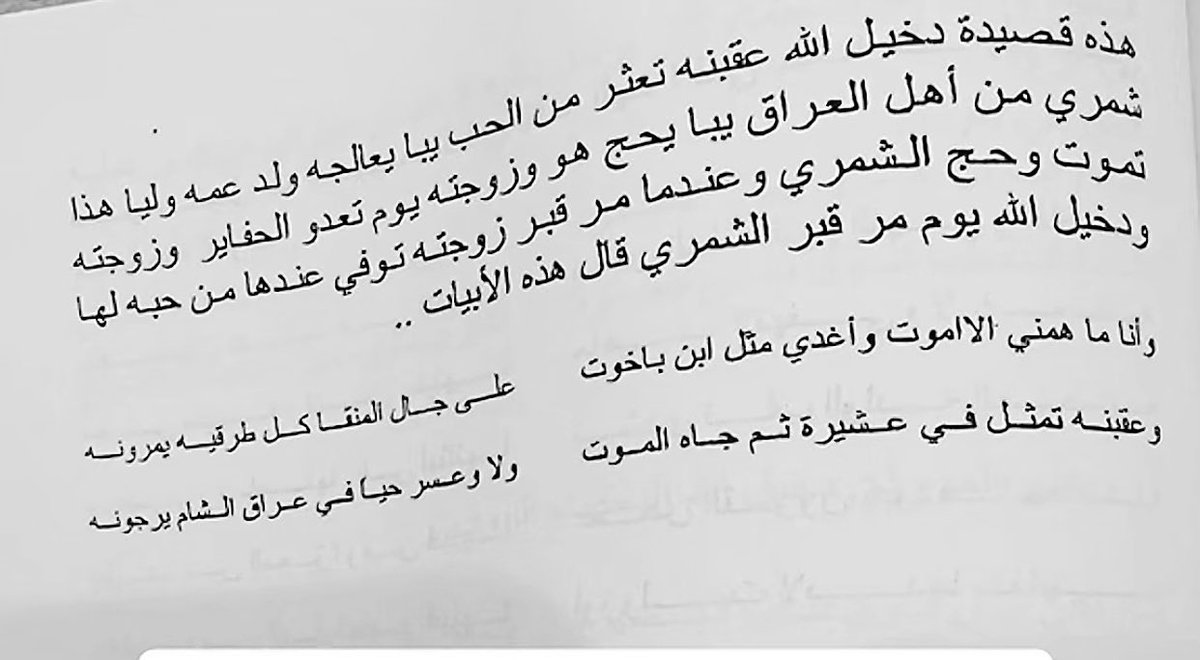 هذه قصيدة دخيل الله عقبنه تعثر من الحب يبا يعالجه ولد عمه وليا هذا
شمري من أهل العراق يبا يحج هو وزوجته يوم تعدو الحفاير وزوجته
تموت وحج الشمري وعندما مر قبر زوجته توفي عندها من حبه لها
ودخيل الله يوم مر قبر الشمري قال هذه الأبيات ..
وأنا ما همني الااموت وأغدي مثل ابن باخوت
على جال المنقا كل طرقيه يمرونه
وعقبنه تمثل في عشيرة ثم جاه الموت
ولا وعسر حيا في عراق الشام يرجونه